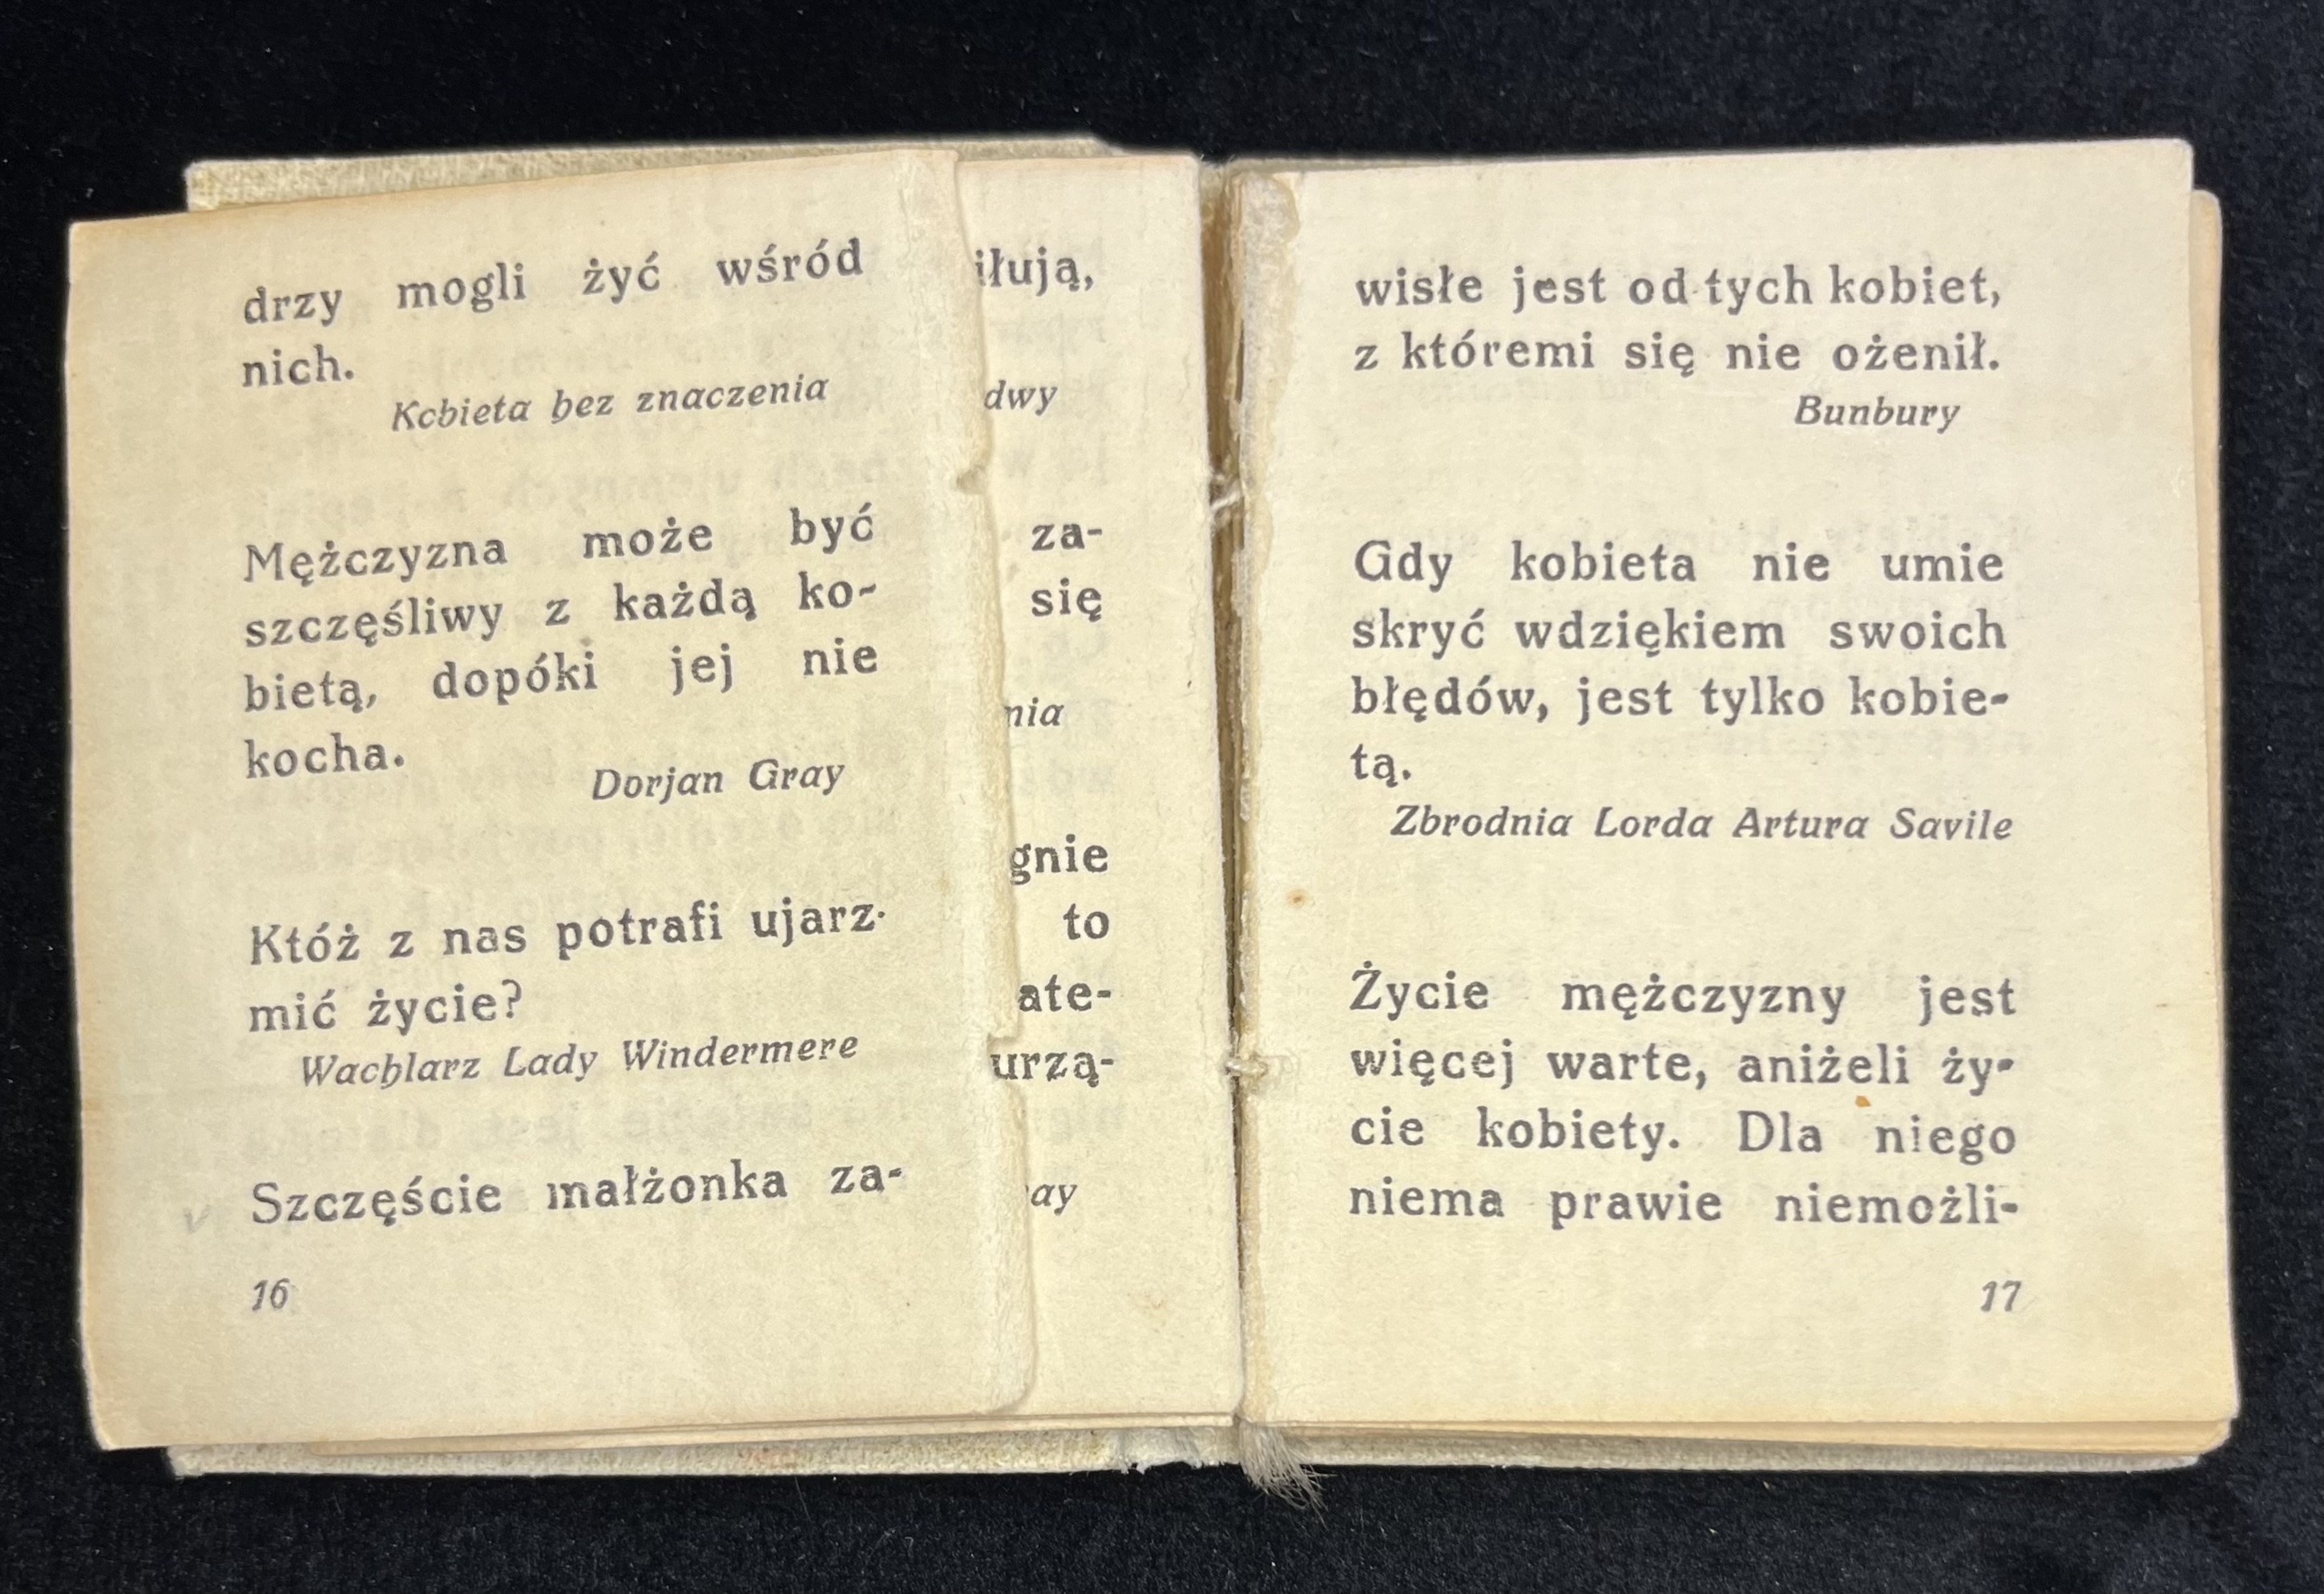 drzy mogli żyć wśród
nich.
Kobieta bez znaczenia
Mężczyzna może być
szczęśliwy z każdą ko-
bietą, dopóki jej nie
kocha.
Dorjan Gray
Któż z nas potrafi ujarz-
mić życie?
Wachlarz Lady Windermere
Szczęście małżonka za-
16
iłują,
dwy
za-
się
nia
gnie
to
ate-
urzą-
ay
wisłe jest od tych kobiet,
z któremi się nie ożenił.
Bunbury
Gdy kobieta nie umie
skryć wdziękiem swoich
błędów, jest tylko kobie-
tą.
Zbrodnia Lorda Artura Savile
Życie mężczyzny jest
więcej warte, aniżeli ży-
cie kobiety. Dla niego
niema prawie niemożli-
17